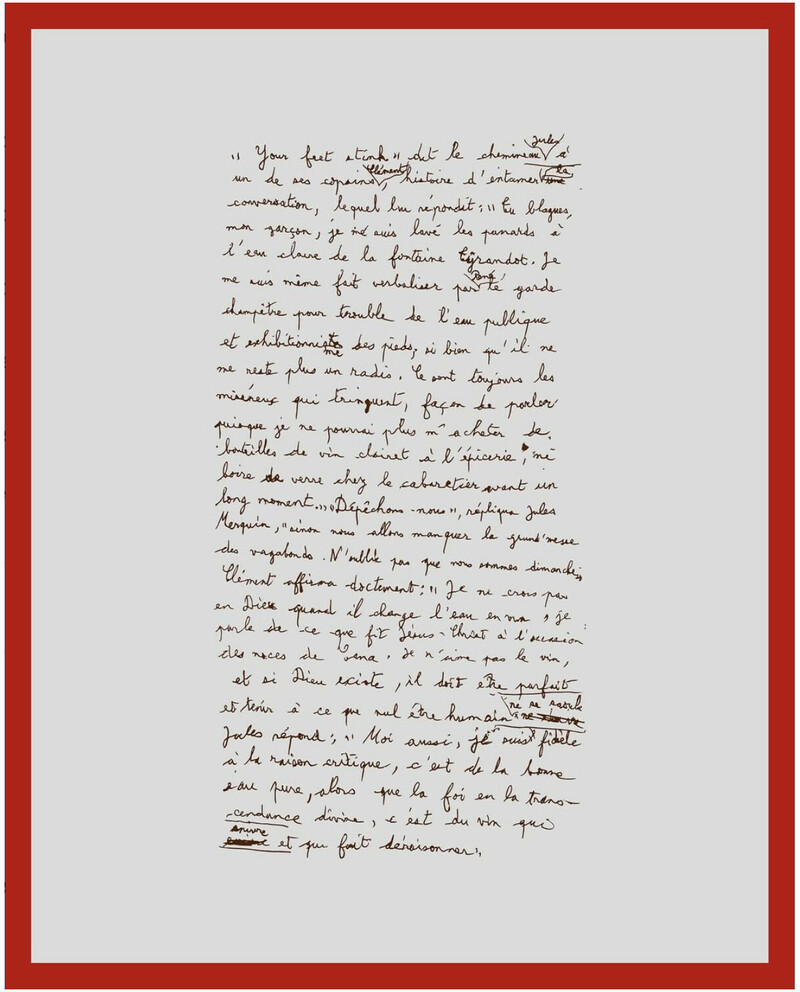 " Your feet stink " dit le chemineau Jules à
un de ses copains, Clément, histoire d'entamer la
conversation, lequel lui répondit : " Tu blagues,
mon garçon, je me suis lavé les panards à
l'eau claire de la fontaine Gyrandot. Je
me suis même fait verbaliser par le garde
champêtre pour trouble de l'eau publique
et exhibitionnisme des pieds, si bien qu'il ne
me reste plus un radis. Ce sont toujours les
miséreux qui trinquent, façon de parler
puisque je ne pourrai plus m'acheter de
bouteilles de vin clairet à l'épicerie, ni
boire de verre chez le cabaretier avant un
long moment. " " Dépêchons-nous ", répliqua Jules
Merquin, " sinon nous allons manquer la grand'messe
des vagabonds. N'oublie pas que nous sommes dimanche "
Clément affirma doctement : " Je ne crois pas
en Dieu quand il change l'eau en vin, je
parle de ce que fit Jésus-Christ à l'occasion
des noces de Cana. Je n'aime pas le vin,
et si Dieu existe, il doit être parfait
et tenir à ce que nul être humain ne se saoule "
Jules répond : " Moi aussi, je suis fidèle
à la raison critique, c'est de la bonne
eau pure, alors que la foi en la trans-
cendance divine, c'est du vin qui
enivre et qui fait déraisonner "